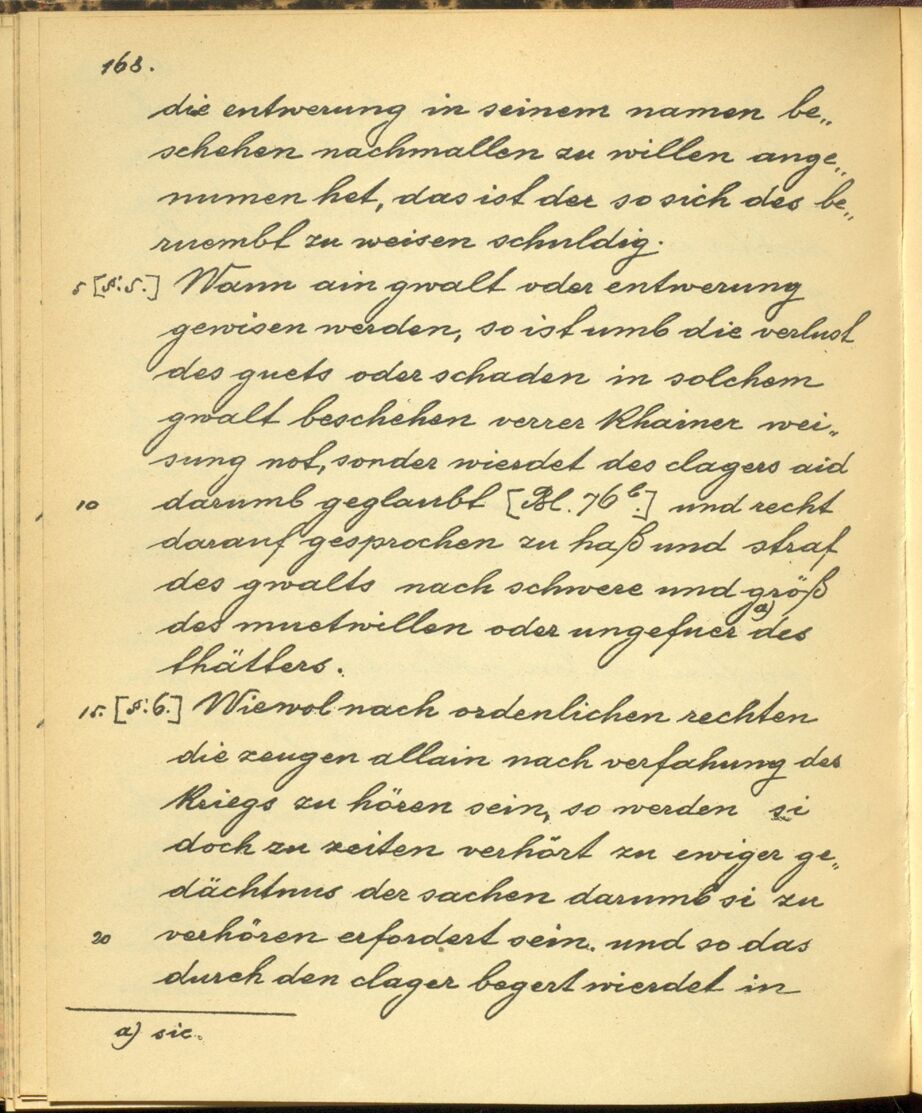 168.
die entwerung in seinem namen be„
schehen nachmallen zu willen ange„
numen het, das ist der so sich des be„
ruembt zu weisen schuldig.
5 [§:5.] Wann ain gwalt oder entwerung
gewisen werden, so ist umb die verlust
des guets oder schaden in solchem
gwalt beschehen verrer khainer wei„
sung not, sonder wierdet des clagers aid
10 darumb geglaubt [Bl. 76b.] und recht
darauf gesprochen zu haß und straf
des gwalts nach schwere und größ
des muetwillen oder ungefuer a) des
thätters.
15. [§:6.] Wiewol nach ordenlichen rechten
die zeugen allain nach verfahung des
kriegs zu hören sein, so werden si
doch zu zeiten verhört zu ewiger ge„
dächtnus der sachen darumb si zu
20 verhören erfordert sein. und so das
durch den clager begert wierdet in
a) sic.